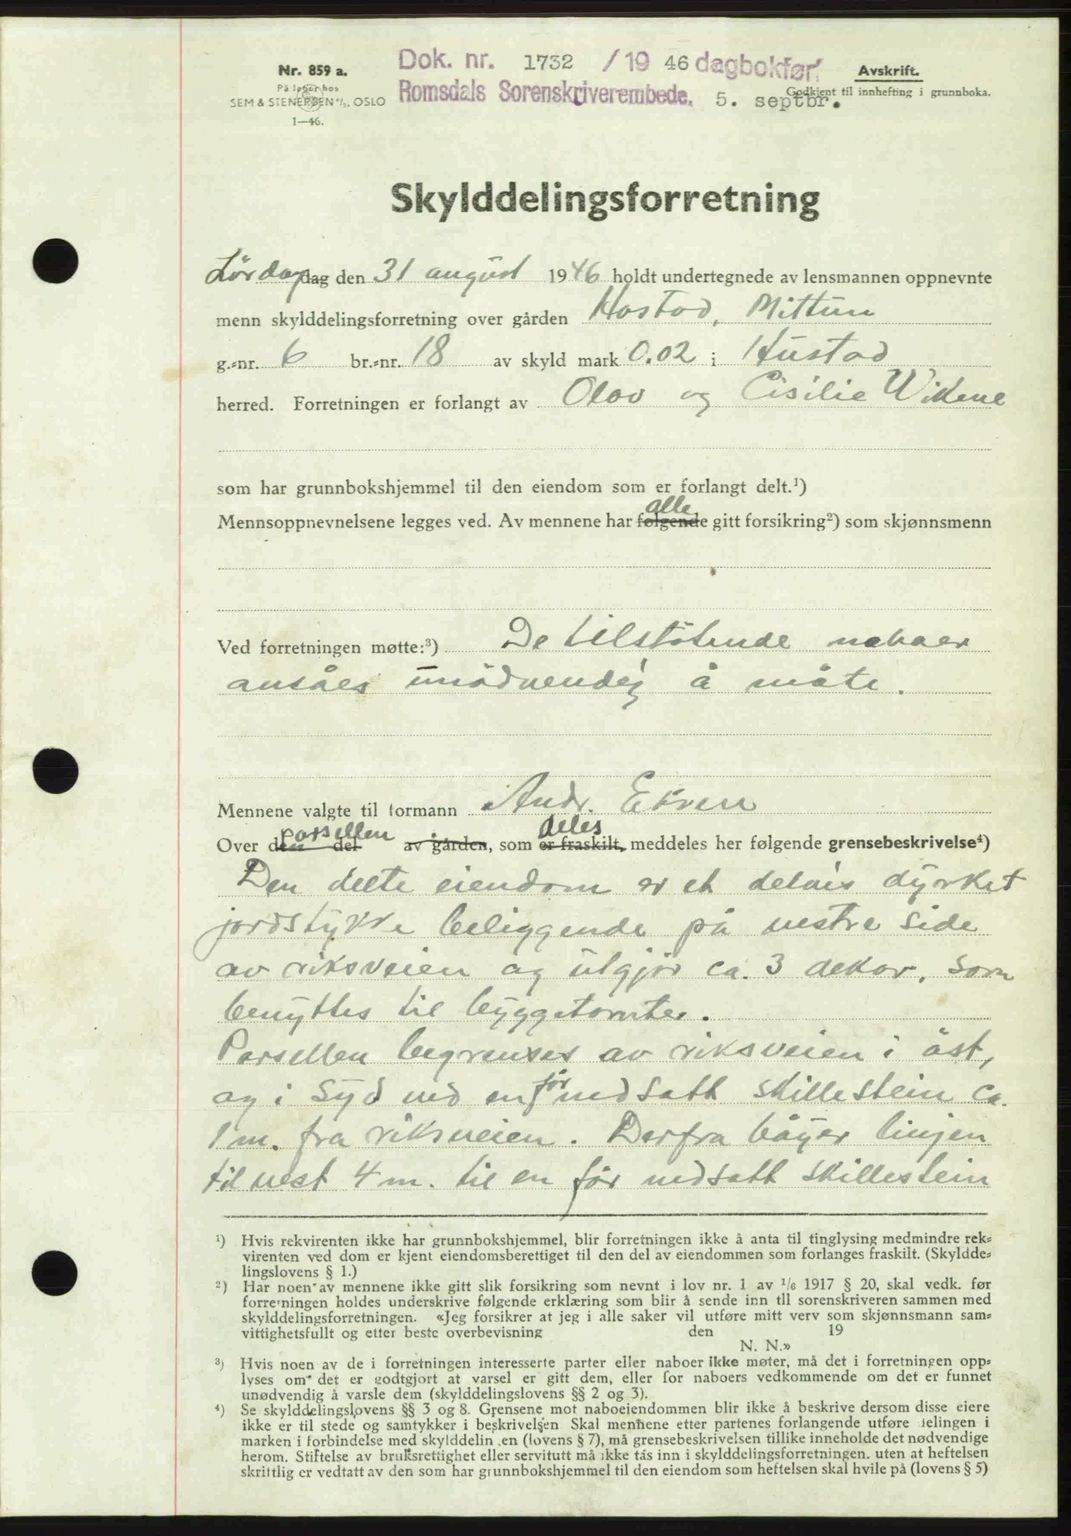 Nr. 859 a.
På lager hos
SEM & STENERSEN A/S, OSLO
1—46.
Dok. nr. 1732 / 19 46 dagbokfør.
Romsdals Sorenskriverembede. 5. septbr.
Avskrift.
Godkjent til innhefting i grunnboka.
Skylddelingsforretning
Lørdag dag den 31 august 1946 holdt undertegnede av lensmannen oppnevnte
menn skylddelingsforretning over gården Hostad, Mittun
g.-nr. 6 br.-nr. 18 av skyld mark 0.02 i Hustad
herred. Forretningen er forlangt av Olav og Cisilie Wikene
som har grunnbokshjemmel til den eiendom som er forlangt delt.¹)
alle
Mennsoppnevnelsene legges ved. Av mennene har følgende gitt forsikring²) som skjønnsmenn
Ved forretningen møtte:³) De tilstøtende naboer
ansåes unødvendig å møte.
Mennene valgte til formann Andr.
parsellen deles
Over den del av gården, som er fraskilt, meddeles her følgende grensebeskrivelse⁴)
Den delte eiendom er et delvis dyrket
jordstykke beliggende på vestre side
av riksveien og utgjør ca. 3 dekar, som
benyttes til byggetomter.
Parsellen begrenses av riksveien i øst,
og i syd ved en før nedsatt skillestein ca.
1 m. fra riksveien. Derfra bøyer linjen
til vest 4 m. til en før nedsatt skillestein
¹) Hvis rekvirenten ikke har grunnbokshjemmel, blir forretningen ikke å anta til tinglysing medmindre rek-
virenten ved dom er kjent eiendomsberettiget til den del av eiendommen som forlanges fraskilt. (Skyldde-
lingslovens § 1.)
²) Har noen av mennene ikke gitt slik forsikring som nevnt i lov nr. 1 av 1/6 1917 § 20, skal vedk. før
forretningen holdes underskrive følgende erklæring som blir å sende inn til sorenskriveren sammen med
skylddelingsforretningen. «Jeg forsikrer at jeg i alle saker vil utføre mitt verv som skjønnsmann sam-
vittighetsfullt og etter beste overbevisning den 19
N. N.»
³) Hvis noen av de i forretningen interesserte parter eller naboer ikke møter, må det i forretningen opp-
lyses om det er godtgjort at varsel er gitt dem, eller for naboers vedkommende om det er funnet
unødvendig å varsle dem (skylddelingslovens §§ 2 og 3).
⁴) Se skylddelingslovens §§ 3 og 8. Grensene mot naboeiendommen blir ikke å beskrive dersom disse eiere
ikke er til stede og samtykker i beskrivelsen Skal mennene etter partenes forlangende utføre delingen i
marken i forbindelse med skylddelingen (lovens § 7), må grensebeskrivelsen tillike inneholde det nødvendige
herom. Stiftelse av bruksrettighet eller servitutt må ikke tas inn i skylddelingsforretningen. uten at heftelsen
skriftlig er vedtatt av den som har grunnbokshjemmel til den eiendom som heftelsen skal hvile på (lovens § 5)